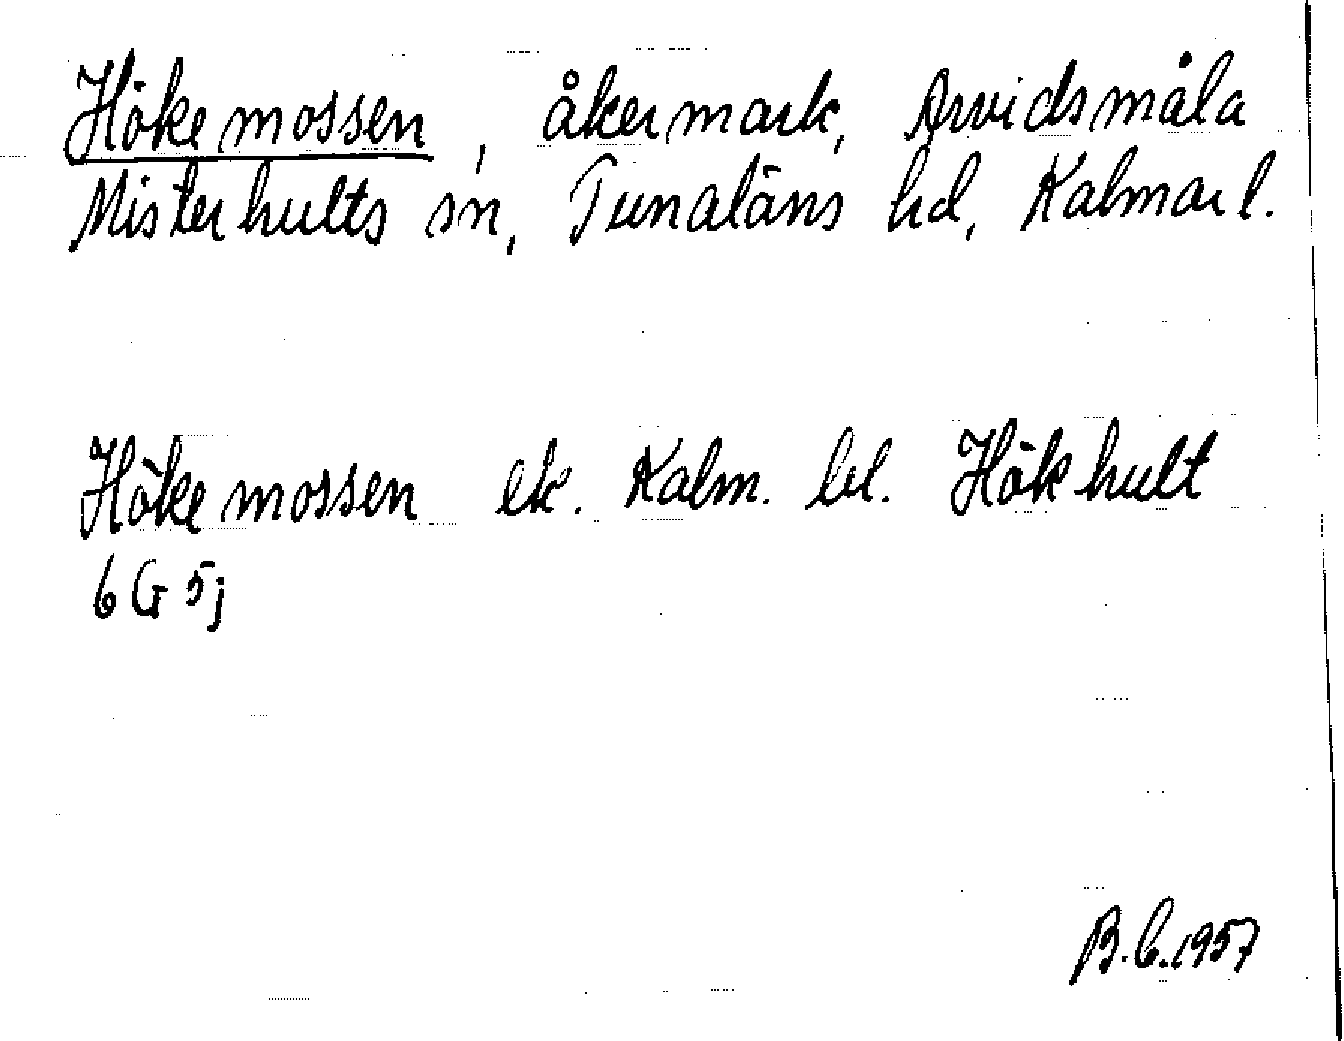 Hökemossen, åkermark, Arvidsmåla
Misterhults sn, Tunaläns hd, Kalmar l.
Hökemossen ek. Kalm. bl. Hökhult
6G 5j
B.C. 1957